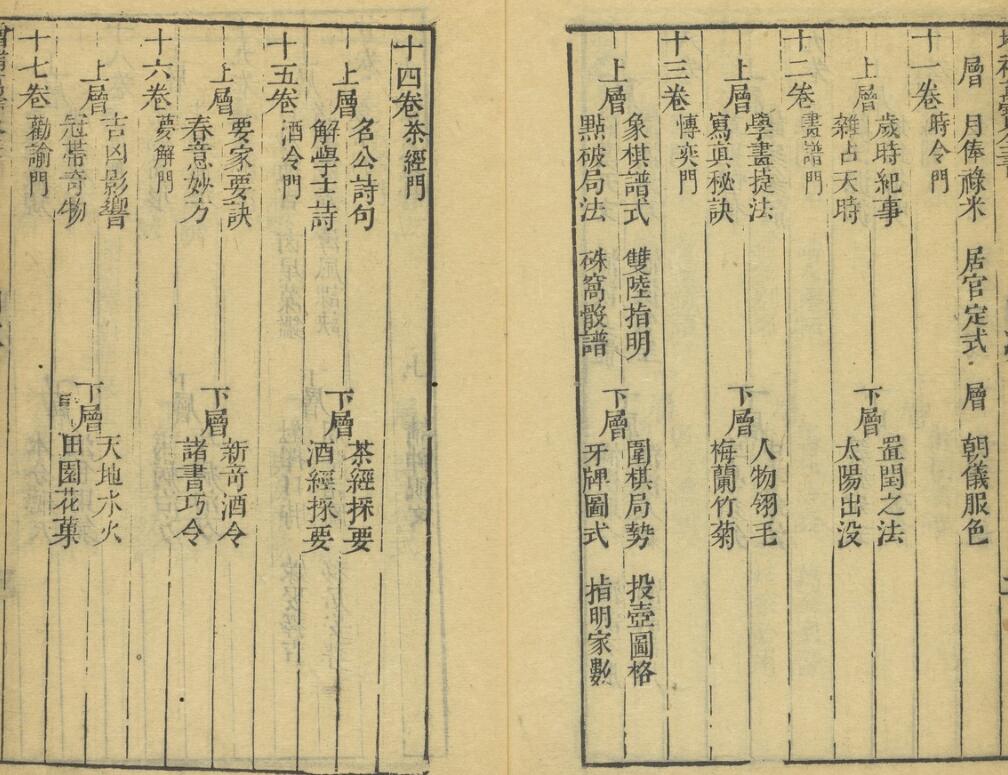 層　月俸祿米　居官定式　層　朝儀服色
十一卷　時令門
上層　歲時紀事　雜占天時　下層　置閏之法　太陽出没
十二卷　畫譜門
上層　學畫捷法　寫真秘訣　下層　人物翎毛　梅蘭竹菊
十三卷　博奕門
上層　象棋譜式　雙陸指明　點破局法　硃窩骰譜　下層　圍棋局勢　投壺圖格　牙牌圖式　指明家數
十四卷　茶經門
上層　名公詩句　解學士詩　下層　茶經採要　酒經採要
十五卷　酒令門
上層　要家要訣　春意妙方　下層　新奇酒令　諸書巧令
十六卷　夢解門
上層　吉凶影響　冠帯奇物　下層　天地水火　田園花菓
十七卷　勸諭門